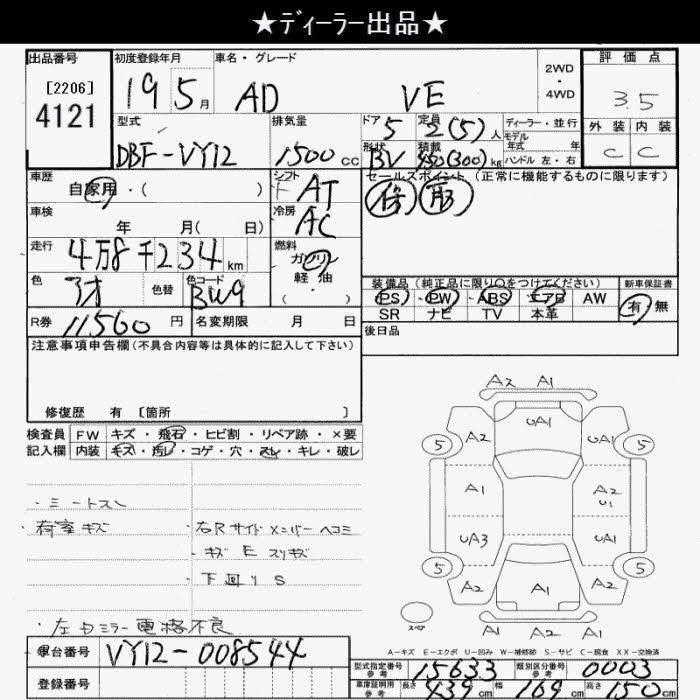 ★ディーラー出品★
出品番号
[2206]
4121
初度登録年月
19 5月
車名・グレード
AD VE
2WD
・
4WD
評価点
3.5
外装 内装
C C
型式
DBF-VY12
排気量
1500 cc
ドア
5
定員
2(5)人
形状
BV
積載
450(300)kg
ディーラー・並行
モデル
年式 年
ハンドル 左・右
車歴
自家用・( )
シフト
F AT
セールスポイント(正常に機能するものに限ります)
車検
年 月( 日)
冷房
AC
走行
4万8千234km
燃料
ガソリン
軽油
( ・ )
色
アオ
色替
色コード
BW9
R券
11560円
名変期限 月 日
装備品(純正品に限り○をつけてください)
PS PW ABS エアB AW
SR ナビ TV 本革
新車保証書
有 無
後日品
注意事項申告欄(不具合内容等は具体的に記入して下さい)
修復歴 有 〔箇所 〕
検査員
記入欄
FW キズ・飛石・ヒビ割・リペア跡・×要
内装 キズ・汚レ・コゲ・穴・スレ・キレ・破レ
・ミートスレ
・荷室キズ
・右Rサイドメンバーヘコミ
・キズE スリキズ
・下回りS
・左ドミラー電格不良
A2 A1
UA1
A2 UA1
5 5
A1 A2
U1
UA3 UA1
5 5
A2 A1 A2
A1 A2 A1
スペア
A-キズ E-エクボ U-凹み W-補修跡 S-サビ C-腐食 XX-交換済
車台番号
VY12-008544
登録番号
型式指定番号
参考
15633
類別区分番号
参考
0003
車庫証明用
参考
長さ 439cm 幅 169cm 高さ 150cm